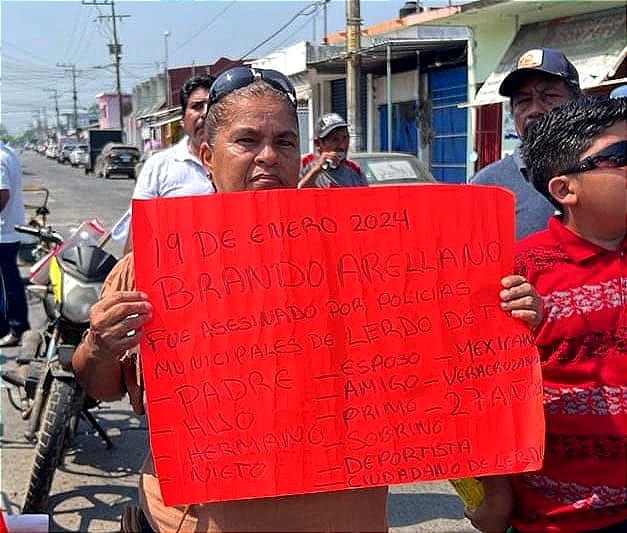 19 DE ENERO 2024
BRANDO ARELLANO
FUE ASESINADO POR POLICIAS
MUNICIPALES DE LERDO DE T.
- PADRE - ESPOSO - MEXICAN
- HIJO - AMIGO - VERACRUZAN
- HERMANO - PRIMO - 27 AÑOS
- NIETO - SOBRINO
- DEPORTISTA
- CIUDADANO DE LERDO